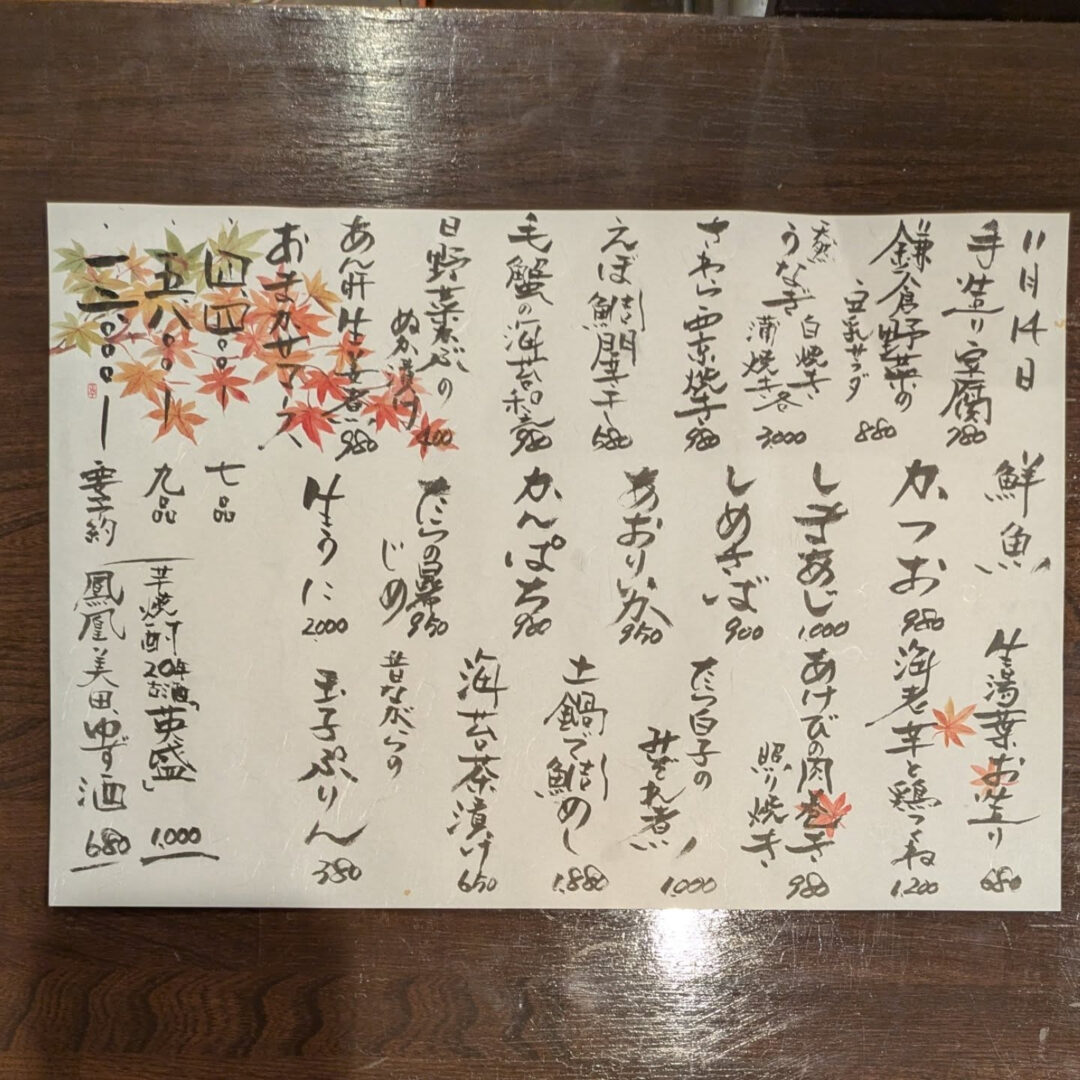 11月14日
手造り豆腐 780
鎌倉野菜の
豆乳サラダ 880
天然
うなぎ 白焼き
蒲焼き 各 3,000
さわら西京焼き 980
えぼ鯛開き干し 580
毛蟹の海苔 980
日野菜かぶの
ぬか漬け 400
あん肝生姜煮 980
おまかせコース
四、四〇〇ー 七品
五、八〇〇ー 九品
要予約
鮮魚
かつお 980
しまあじ 1,000
しめさば 900
あおりいか 950
かんぱち 980
たらの昆布
じめ 950
生うに 2000
生湯葉お造り 680
海老芋と鶏つくね 1,200
あけびの肉巻き
照り焼き 980
たら白子の
みぞれ煮 1,000
土鍋で鯛めし 1,880
海苔茶漬け 650
昔ながらの
玉子ぷりん 380
芋焼酎20年古酒「英盛」 1,000
鳳凰美田ゆず酒 680